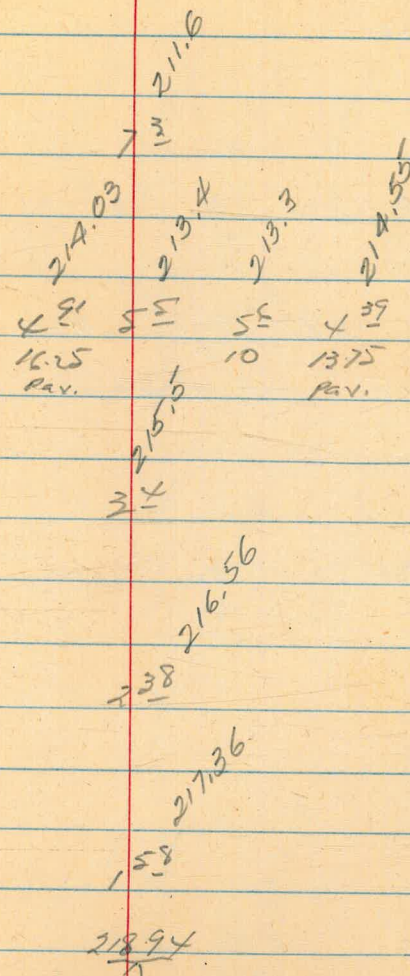 211.6
7 3
214.03 213.4 213.3 214.55
4 91 5 5 5 6 4 39
16.25 10 13.75
Pav. Pav.
215.5
3 4
216.56
2 38
217.36
1 58
218.94